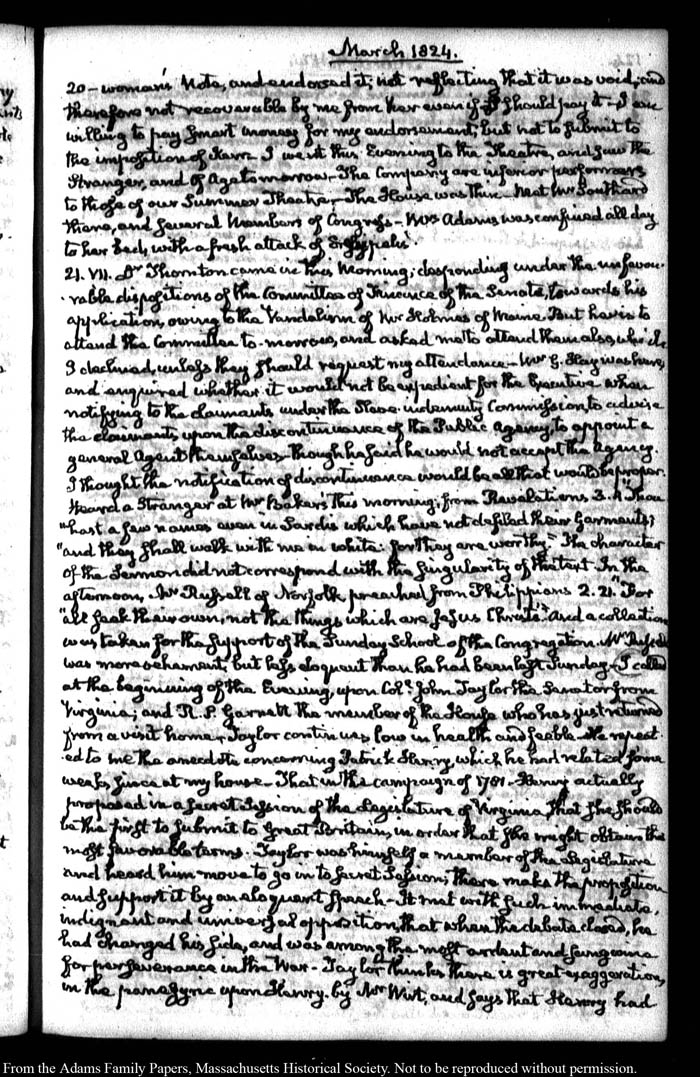 March 1824.
20 – woman's Note, and endorsed it; not reflecting that it was void, and
therefore not recoverable by me from her even if I should pay it – I am
willing to pay smart money for my endorsement, but not to submit to
the imposition of I went this Evening to the Theatre, and saw the
Stranger, and of Age tomorrow – The Company are inferior performers
to those of our Summer Theatre – The House was thin – Met Mr Southard
there, and several Members of Congress – Mrs Adams was confined all day
to her bed, with a fresh attack of Erysipelas.
21. VII. Dr Thornton came in this Morning; desponding under the unfavou-
-rable dispositions of the Committee of Finance of the Senate, towards his
application, owing to the Vandalism of Mr Holmes of Maine. But he is to
attend the Committee to-morrow, and asked me to attend them also, which
I declined, unless they should request my attendance – Mr G. Hay was here,
and enquired whether it would not be expedient for the Executive when
notifying to the claimants under the Slave-indemnity Commission, to advise
the claimants, upon the discontinuance of the Public Agency, to appoint a
general Agent themselves – though he said he would not accept the Agency.
I thought the notification of discontinuance would be all that would be proper.
Heard a Stranger at Mr Baker's this morning; from Revelations 3. 4 "Thou
"hast a few names even in Sardis which have not defiled their Garments;
"and they shall walk with me in white: for they are worthy." The character
of the Sermon did not correspond with the singularity of the text. In the
afternoon, Mr Russell of Norfolk preached from Philippians 2. 21. "For
"all seek their own, not the things which are Jesus Christ's." And a collection
was taken for the support of the Sunday School of the Congregation. Mr Russell
was more vehement, but less eloquent than he had been last Sunday – I called
at the beginning of the Evening, upon Coll. John Taylor the Senator from
Virginia; and R. S. Garnett the member of the House who has just returned
from a visit home – Taylor continues low in health and feeble – He repeat-
-ed to me the anecdote concerning Patrick Henry, which he had related some
weeks since at my house – That in the campaign of 1781 – Henry actually
proposed in a secret Session of the Legislature of Virginia, that she should
be the first to submit to Great Britain, in order that she might obtain the
most favorable terms. Taylor was himself a member of the Legislature
and heard him move to go into secret Session; there make the proposition
and support it by an eloquent speech – It met with such immediate,
indignant and universal opposition, that when the debate closed, he
had changed his side, and was among the most ardent and sanguine
for perseverance in the War – Taylor thinks there is great exaggeration,
in the panegyric upon Henry, by Mr Wirt, and says that Henry had
From the Adams Family Papers, Massachusetts Historical Society. Not to be reproduced without permission.